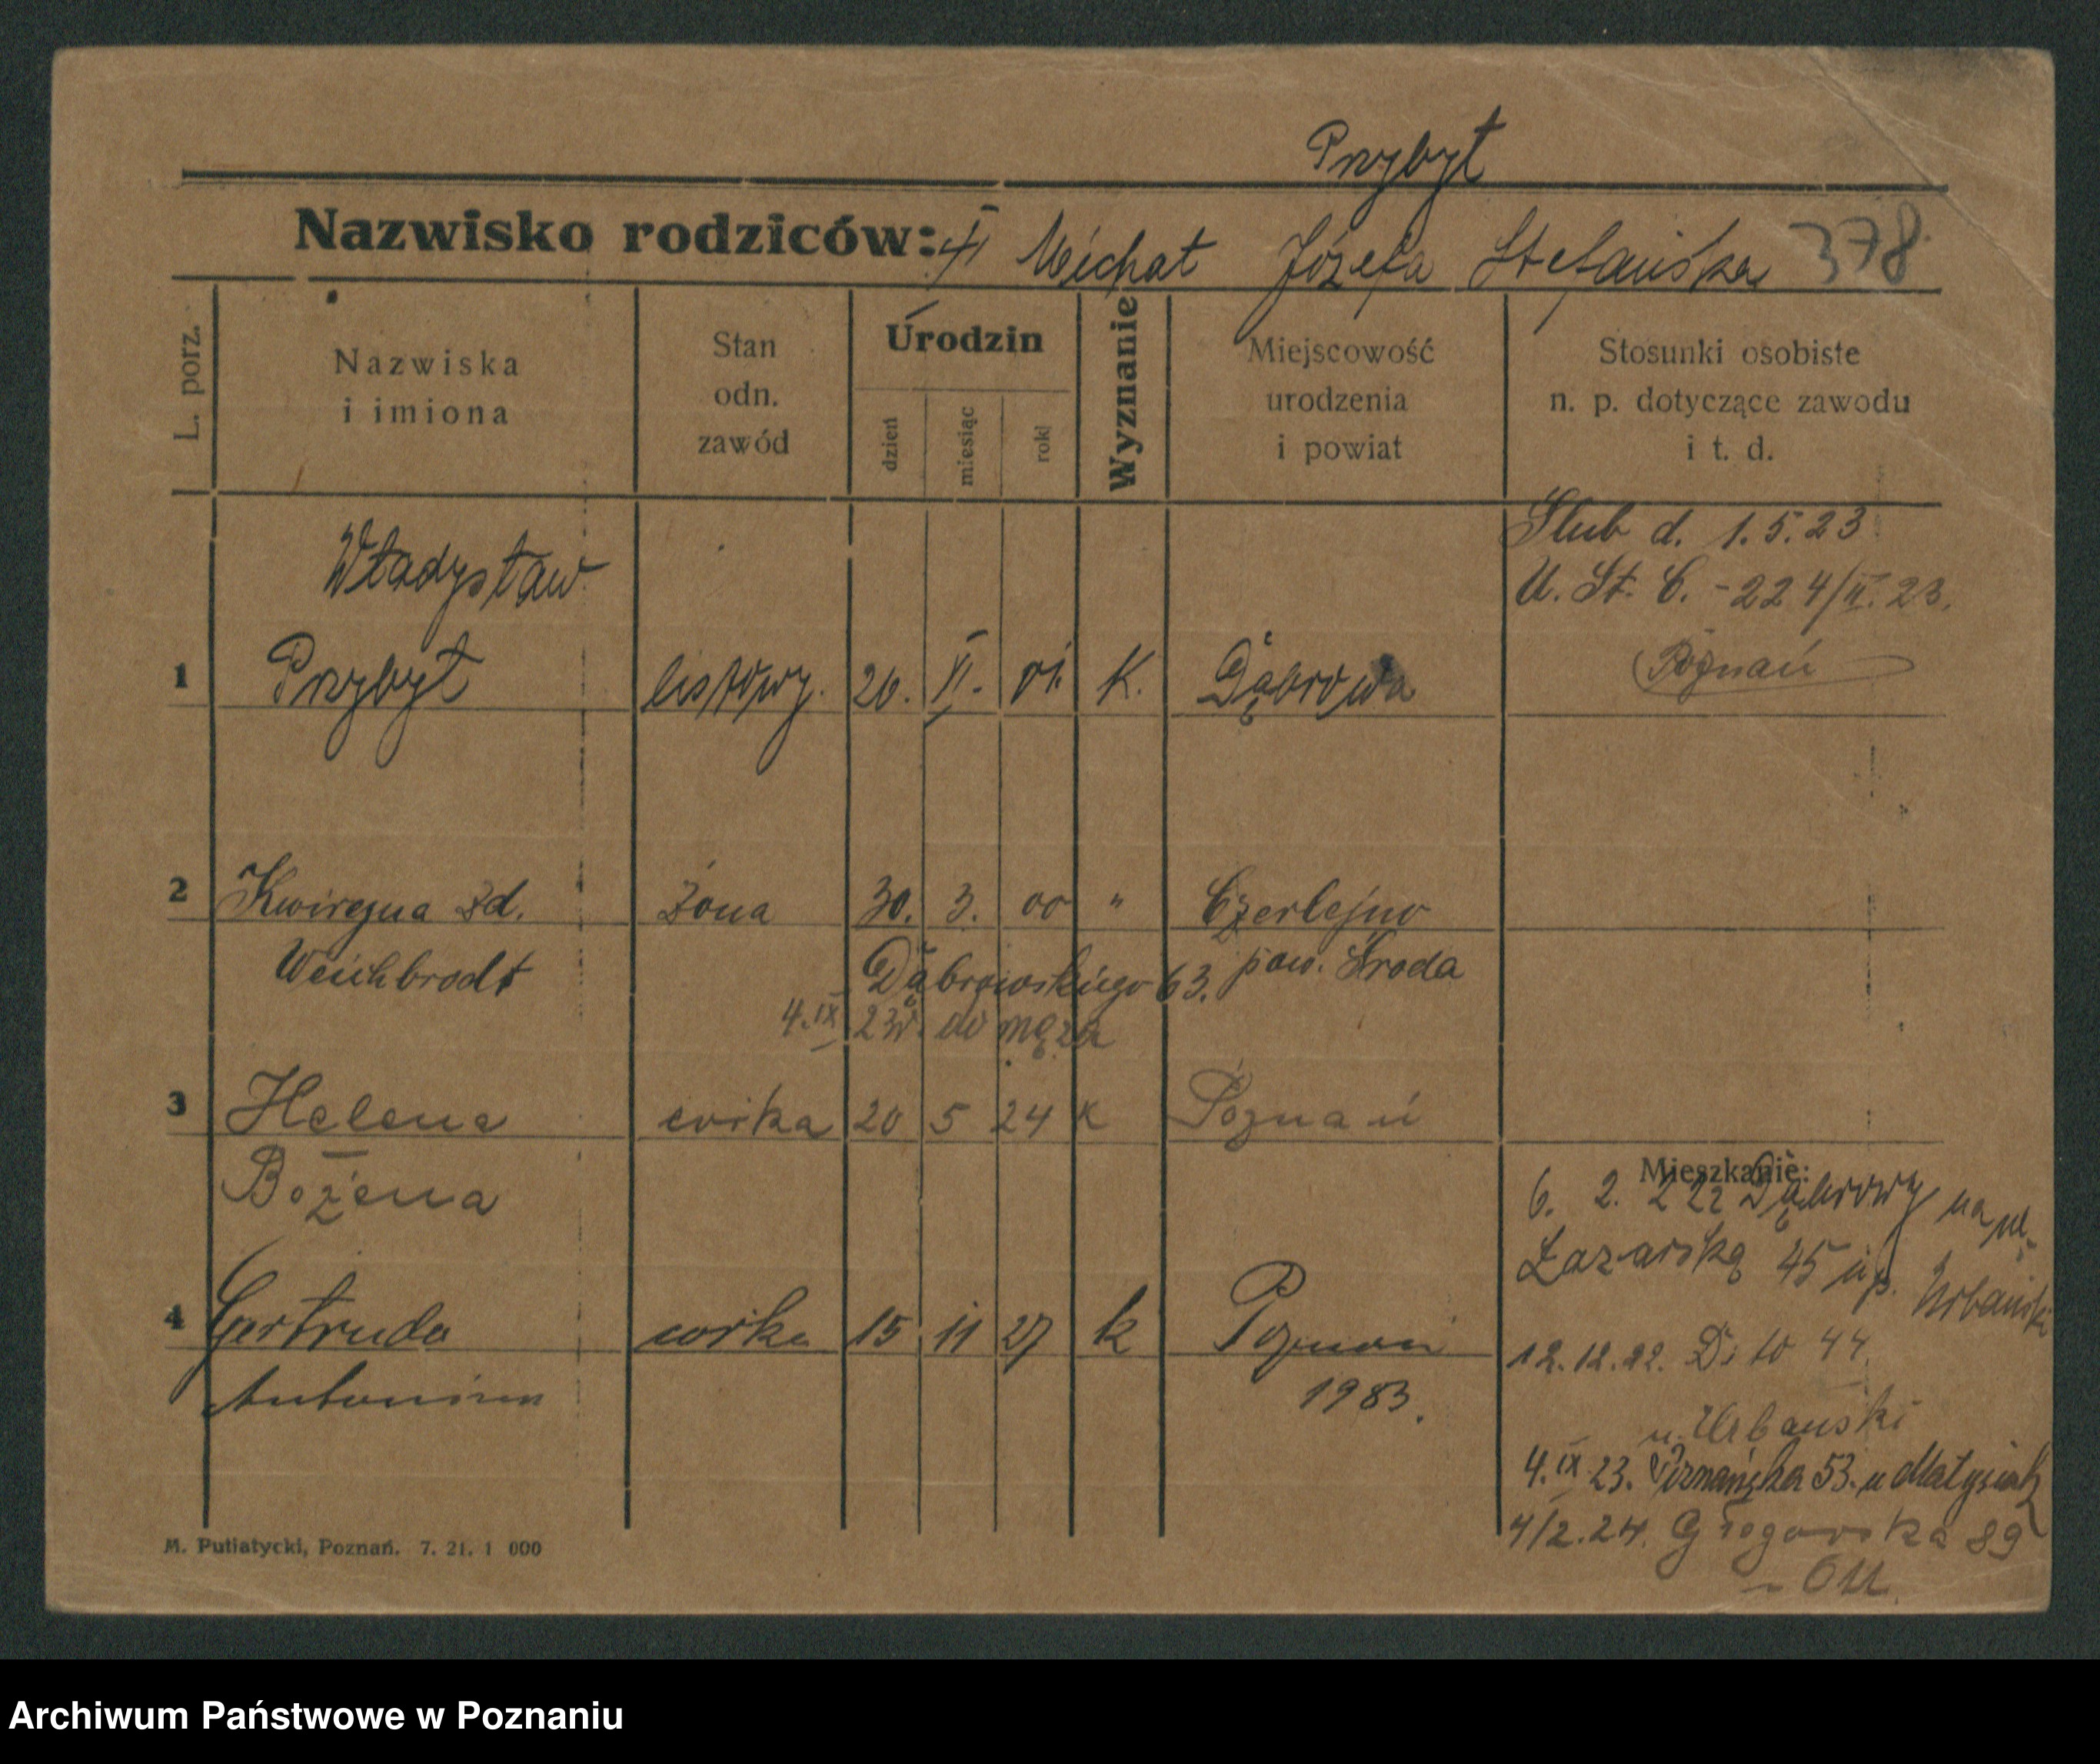 Przybyt
Nazwisko rodziców: Michał Józefa Stefańska 378
L. porz.
Nazwiska i imiona
Stan odn. zawód
Urodzin
dzień
miesiąc
rok
Wyznanie
Miejscowość urodzenia i powiat
Stosunki osobiste n. p. dotyczące zawodu i t. d.
Ślub d. 1.5.23
U. St. C. - 224/II.23.
Poznań
Władysław
1 Przybył listowy. 26. VI. 01. K. Dąbrowa
2 Zd. żona 30. 3. 00 " Czerlejno
Weichbrodt pow. Środa
Dąbrowskiego 63.
4.IX 23r. do męża
3 Helena córka 20 5 24 K Poznań
Bożena
4 Gertruda córka 15 11 27 k Poznań
Antonina 1983.
Mieszkanie:
6. 2. 22 z Dąbrowy na ul.
Łazarską 45 u p. Urbański
12.12.22. Dito 44
u. Urbański
4.IX 23. Poznańska 53. u Matysiak
4/2.24. Głogowska 89
M. Putiatycki, Poznań. 7. 21. 1 000
Archiwum Państwowe w Poznaniu